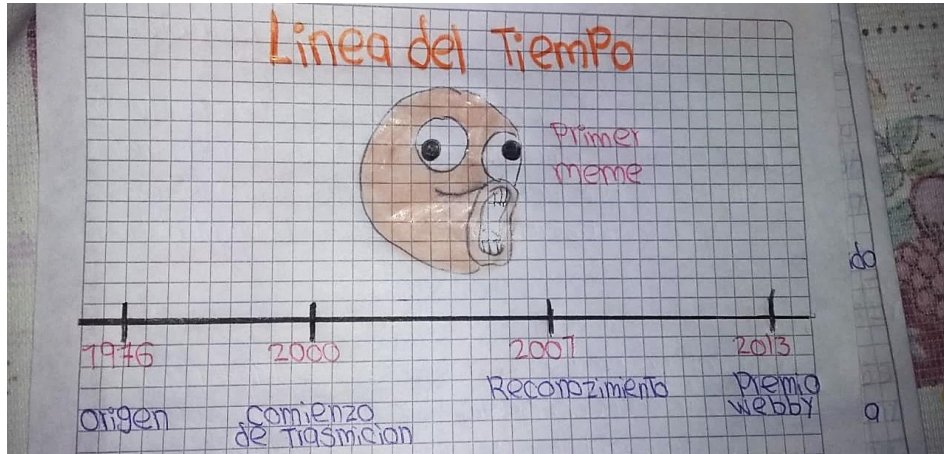 Linea del Tiempo
Primer
meme
1976
2000
2007
2013
origen
comienzo
de Trasmicion
Reconozimento
Premio
webby
do
a